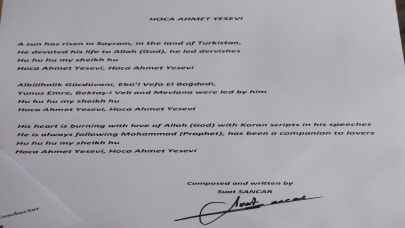 HOCA AHMET YESEVI
A sun has risen in Sayram, in the land of Turkistan,
He devoted his life to Allah (God), he led dervishes
Hu hu hu my sheikh hu
Hoca Ahmet Yesevi, Hoca Ahmet Yesevi
Abülhalik Gücdüvani, Ebu'l Vefa El Bağdadi,
Yunus Emre, Bektaş-i Veli and Mevlana were led by him
Hu hu hu my sheikh hu
Hoca Ahmet Yesevi, Hoca Ahmet Yesevi
His heart is burning with love of Allah (God) with Koran scripts in his speeches
He is always following Mohammad (Prophet), has been a companion to lovers
Hu hu hu my sheikh hu
Hoca Ahmet Yesevi, Hoca Ahmet Yesevi
Composed and written by
Suat SANCAK